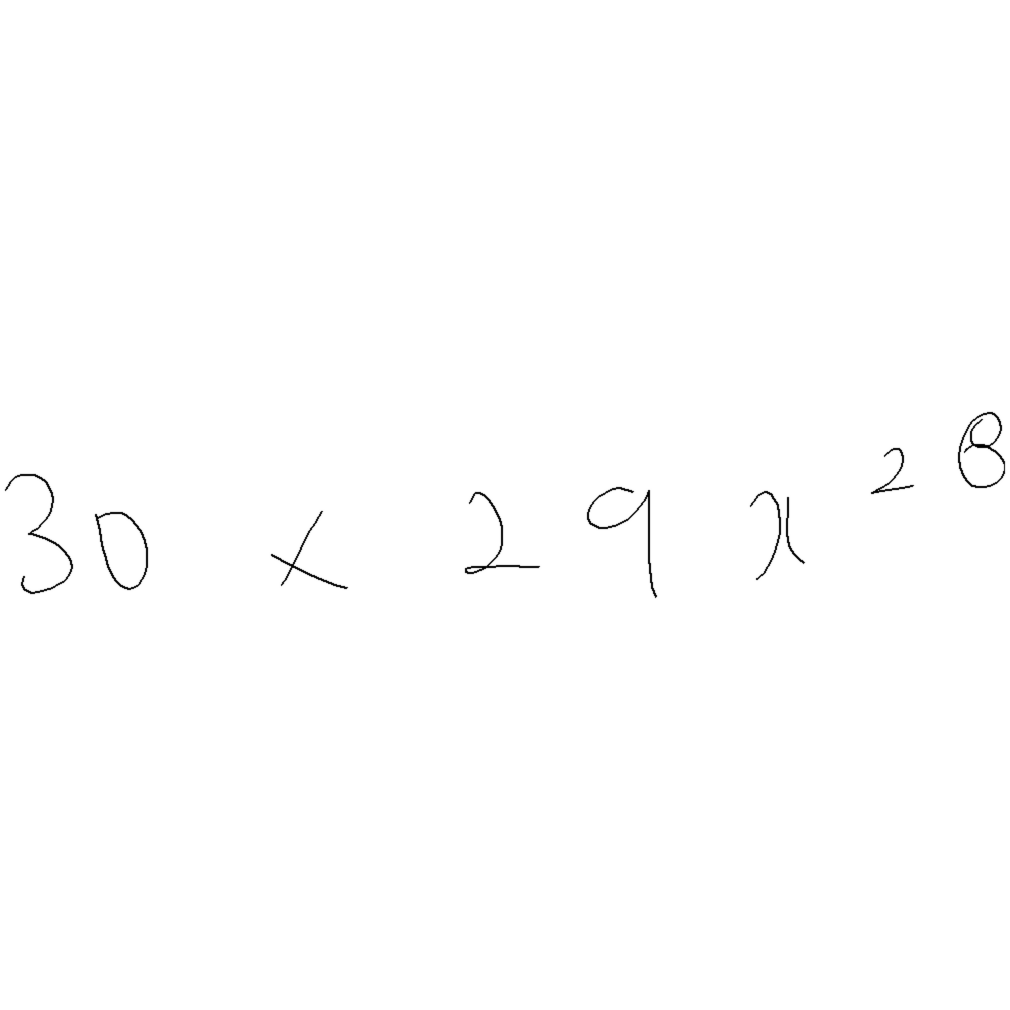 30 × 29 x²⁸